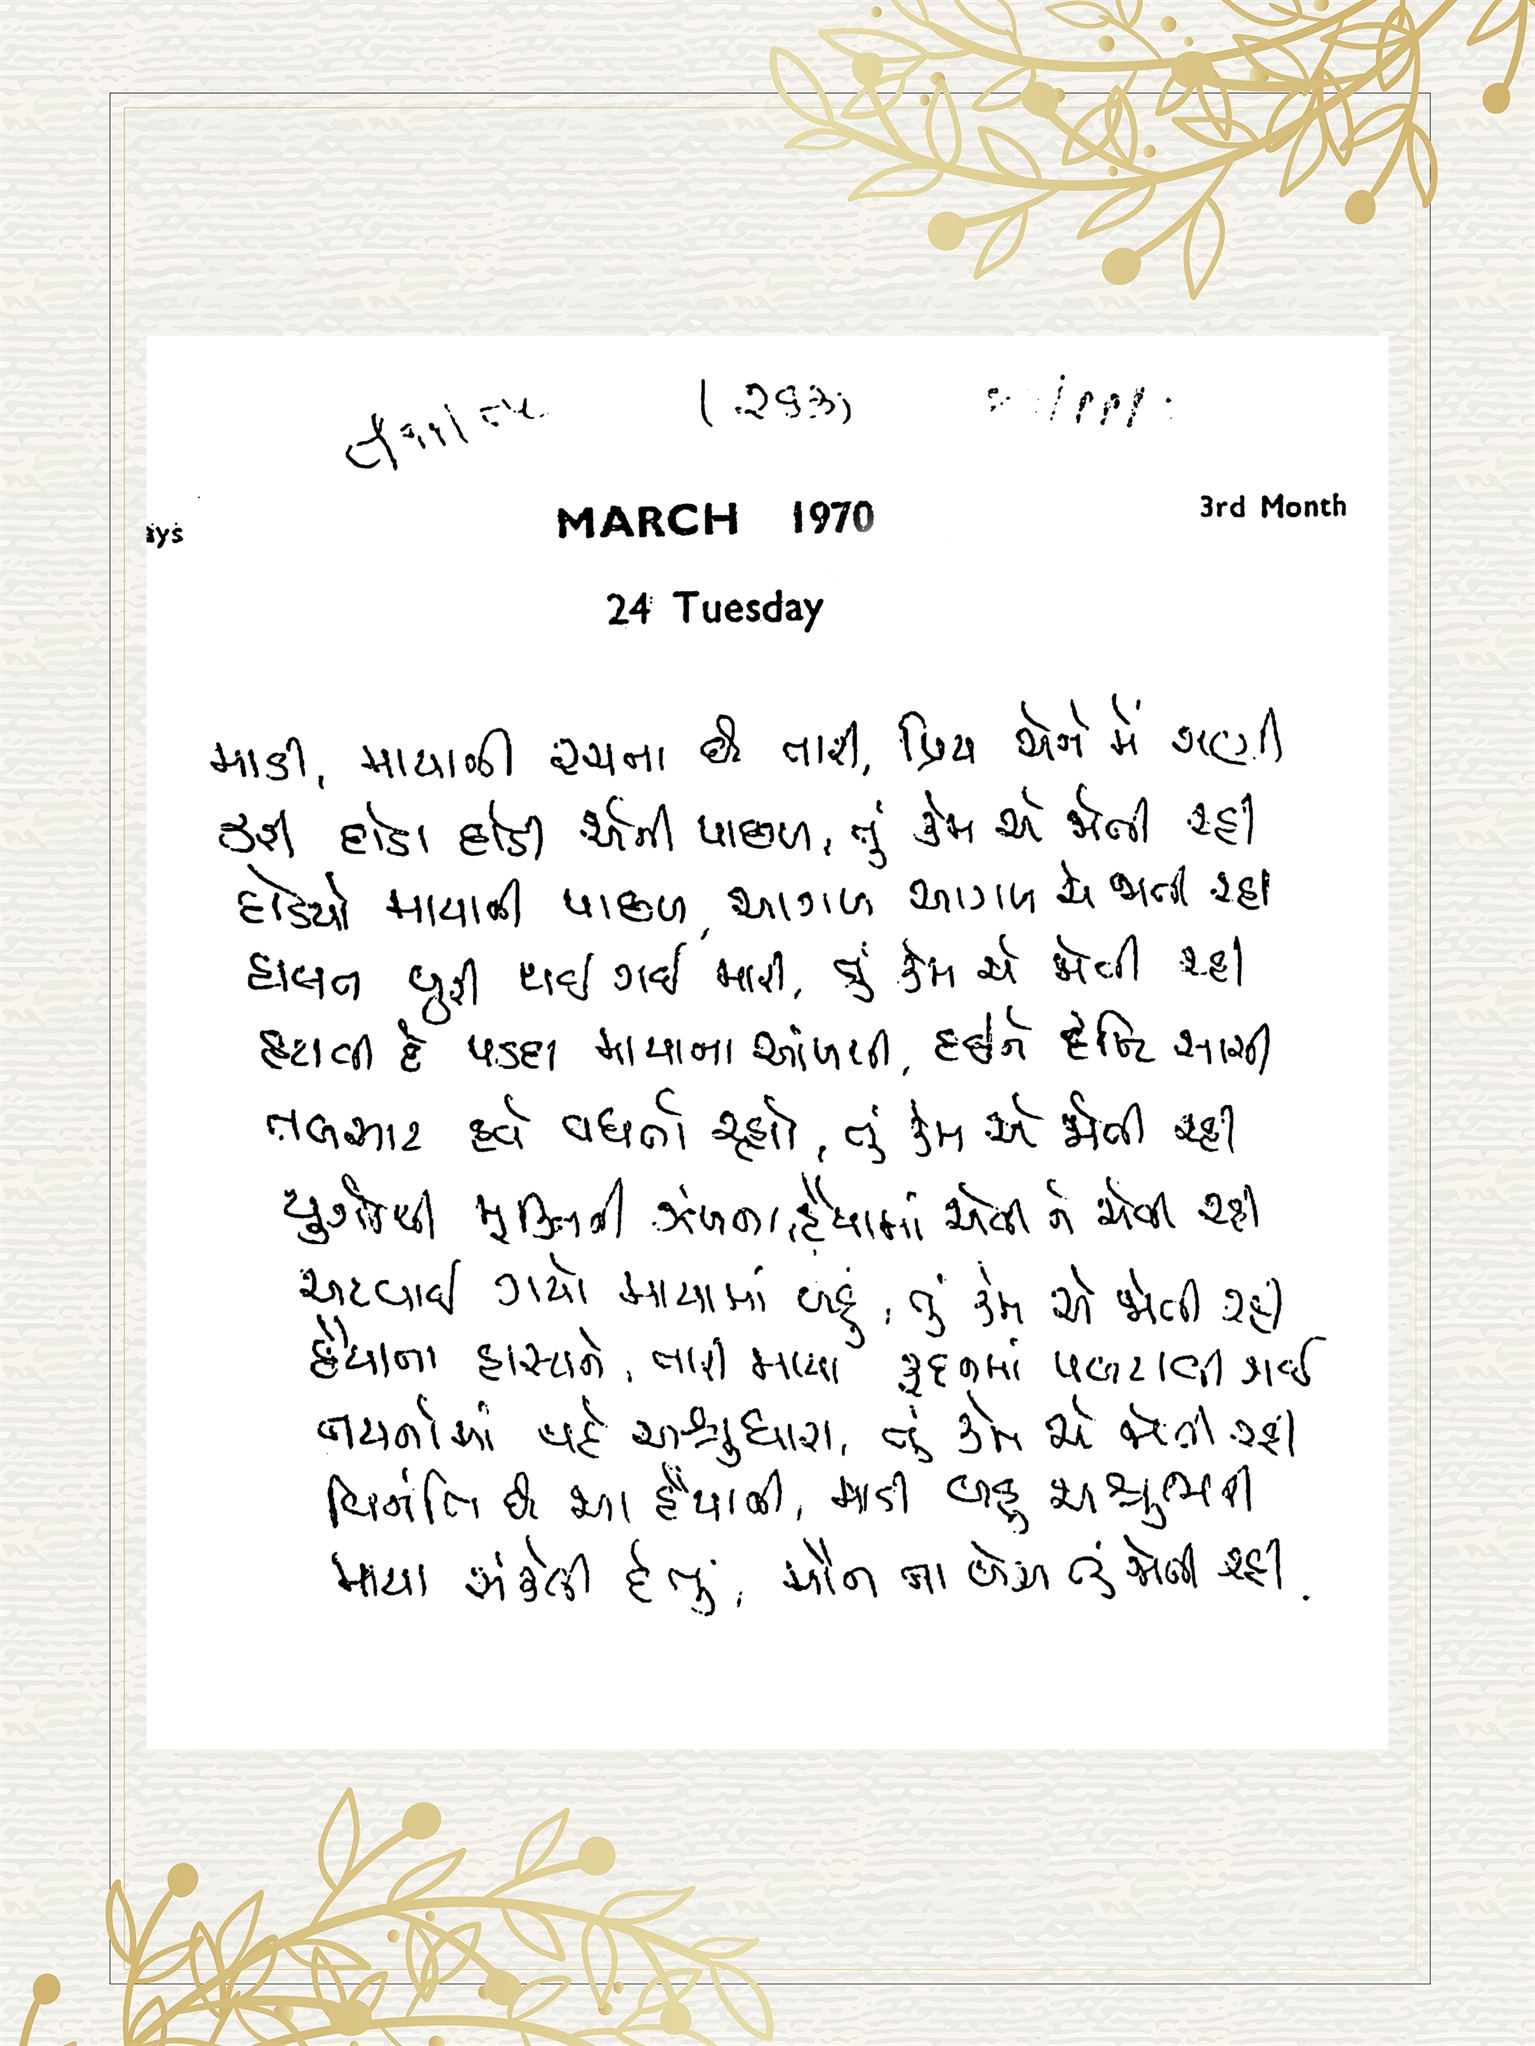 (263)
ays MARCH 1970 3rd Month
24 Tuesday
માડી, માયાળી રચના છે તારી, પ્રિય એને મેં ગણી
કરી દોડા દોડી એની પાછળ, તું કેમ એ જોતી રહી
દોડયો માયાની પાછળ, આગળ આગળ એ જાતી રહી
હાલત બુરી થઈ ગઈ મારી, તું કેમ એ જોતી રહી
હટાવી દે પડદા માયાના આંખથી, દઈને દૃષ્ટિ સાચી
તલસાટ હવે વધતો રહ્યો, તું કેમ એ જોતી રહી
યુગોથી મુક્તિની ઝંખના, હૈયામાં એવી ને એવી રહી
અટવાઈ ગયો માયામાં બહું, તું કેમ એ જોતી રહી
હૈયાના હાસ્યને, તારી માયા રૂદનમાં પલટાવી ગઈ
નયનોમાં વહે અશ્રુધારા, તું કેમ એ જોતી રહી
વિનંતિ છે આ હૈયાની, માડી બહુ અશ્રુભરી
માયા સંકેલી દે તું, મૌન ના બેસ તું જોતી રહી.